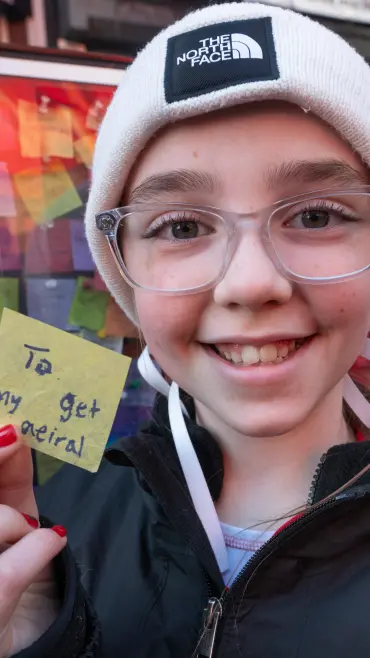 THE
NORTH
FACE
To
my get
neiral